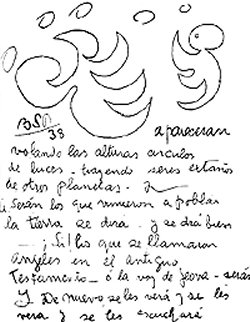 BSP
38
apareceran
volando las alturas circulos
de luces - trayendo seres extraños
de otros planetas.
Serán los que vinieron a poblar
la tierra se dirá y se dirá bien
¡Si! los que se llamaron
angeles en el antiguo
Testamento - ó la voz de Jeova - serán
Y De nuevo se les verá y se les
verá y se les escuchará